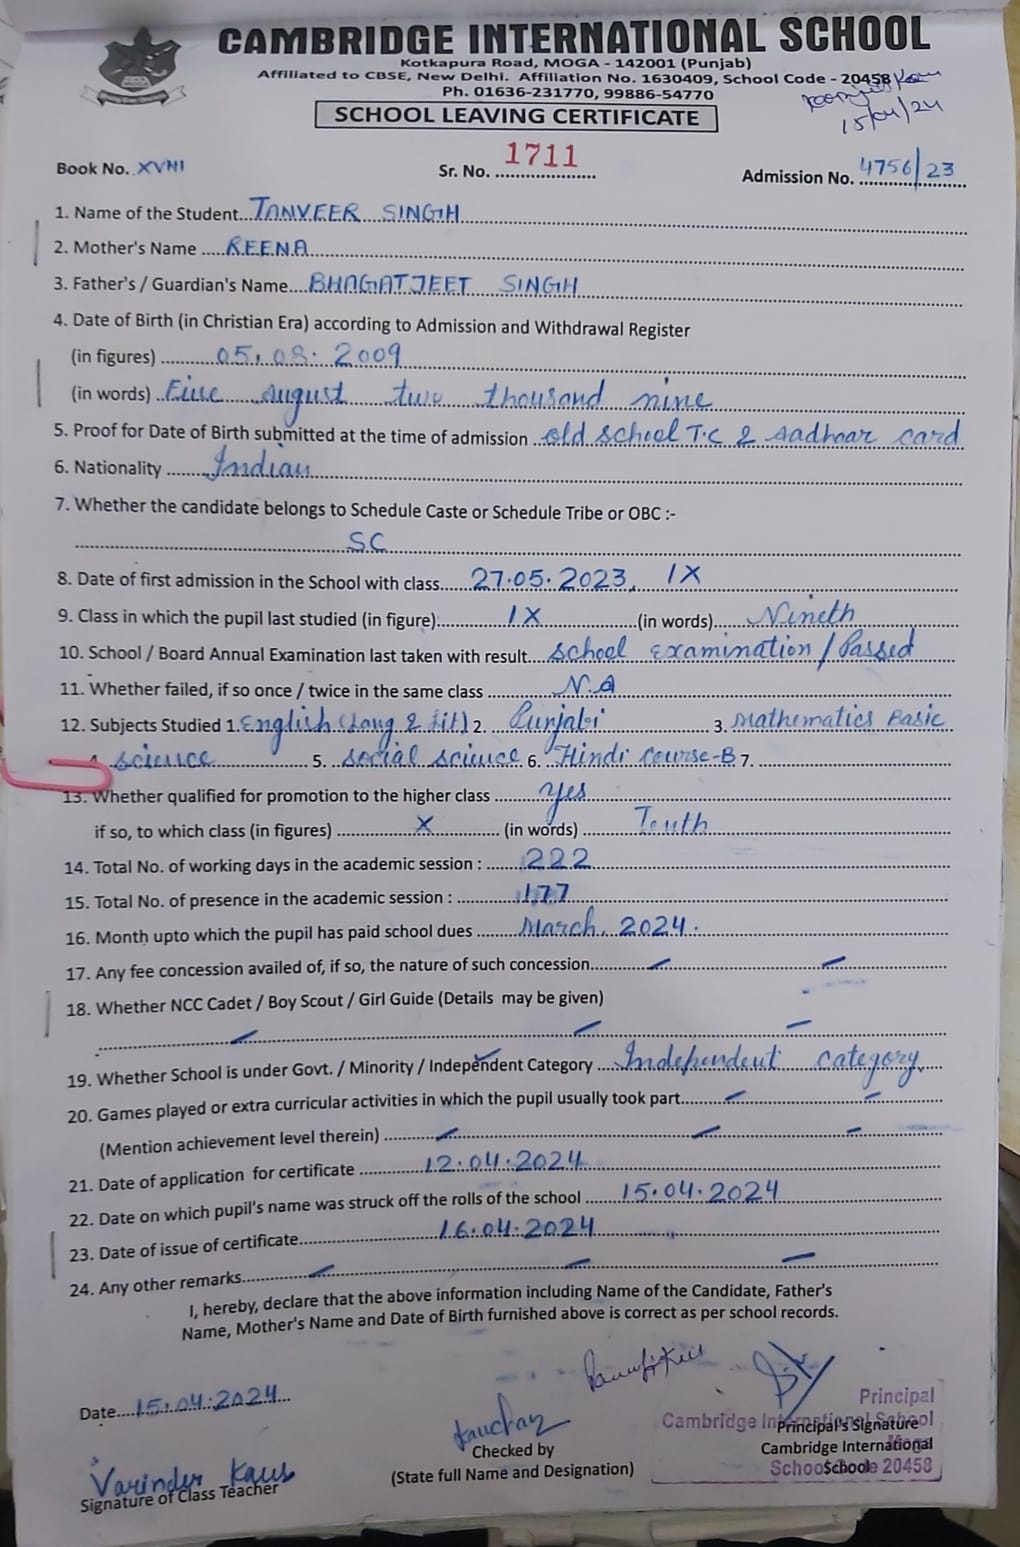 CAMBRIDGE INTERNATIONAL SCHOOL
Kotkapura Road, MOGA - 142001 (Punjab)
Affiliated to CBSE, New Delhi. Affiliation No. 1630409, School Code - 20458
Ph. 01636-231770, 99886-54770
15/04/24
SCHOOL LEAVING CERTIFICATE
Book No. XVIII Sr. No. 1711 Admission No. 4756/23
1. Name of the Student TANVEER SINGH
2. Mother's Name REENA
3. Father's / Guardian's Name BHAGATJEET SINGH
4. Date of Birth (in Christian Era) according to Admission and Withdrawal Register
(in figures) 05.08.2009
(in words) Five august two thousand nine
5. Proof for Date of Birth submitted at the time of admission old school T.C & Aadhaar card
6. Nationality Indian
7. Whether the candidate belongs to Schedule Caste or Schedule Tribe or OBC :-
SC
8. Date of first admission in the School with class 27.05.2023, IX
9. Class in which the pupil last studied (in figure) IX (in words) Nineth
10. School / Board Annual Examination last taken with result School Examination / Passed
11. Whether failed, if so once / twice in the same class N.A
12. Subjects Studied 1. English (Lang & Lit) 2. Punjabi 3. Mathematics Basic
4. Science 5. Social science 6. Hindi Course-B 7.
13. Whether qualified for promotion to the higher class yes
if so, to which class (in figures) X (in words) Tenth
14. Total No. of working days in the academic session : 222
15. Total No. of presence in the academic session : 177
16. Month upto which the pupil has paid school dues March, 2024.
17. Any fee concession availed of, if so, the nature of such concession
18. Whether NCC Cadet / Boy Scout / Girl Guide (Details may be given)
19. Whether School is under Govt. / Minority / Independent Category Independent category
20. Games played or extra curricular activities in which the pupil usually took part
(Mention achievement level therein)
21. Date of application for certificate 12.04.2024
22. Date on which pupil's name was struck off the rolls of the school 15.04.2024
23. Date of issue of certificate 16.04.2024
24. Any other remarks
I, hereby, declare that the above information including Name of the Candidate, Father's
Name, Mother's Name and Date of Birth furnished above is correct as per school records.
Date 15.04.2024
Principal
Cambridge International School
Principal's Signature
Checked by
Cambridge International
(State full Name and Designation)
School
20458
Varinder Kaur
Signature of Class Teacher